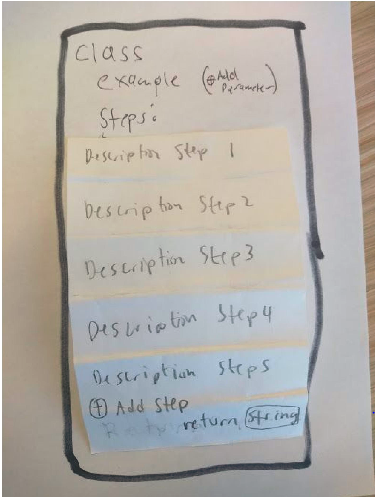 Class
example (⊕ Add Parameter)
Steps:
Description Step 1
Description Step 2
Description Step 3
Description Step 4
Description Step 5
⊕ Add Step
return String